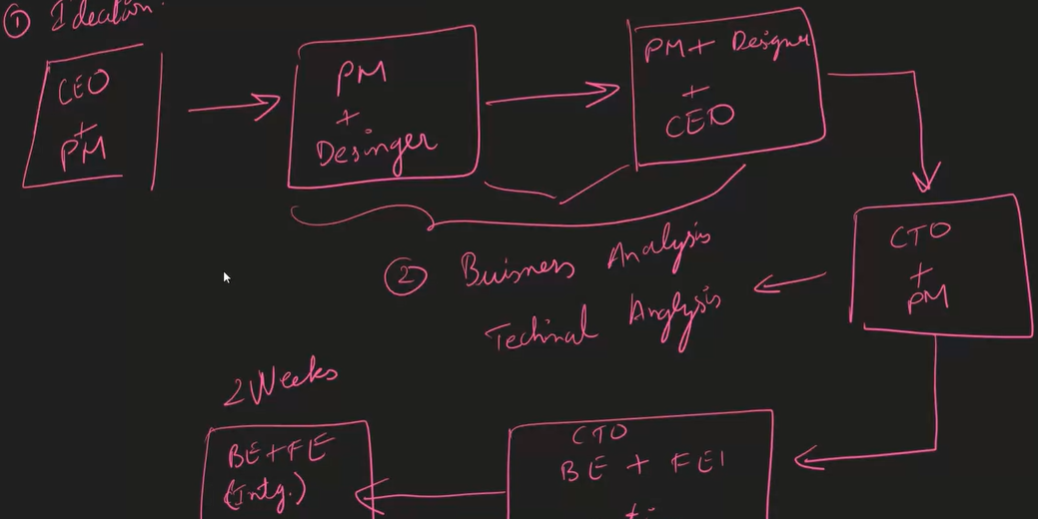 ① Ideation.
CEO
+
PM
PM
+
Desinger
PM + Designer
+
CEO
CTO
+
PM
② Buisness Analysis
Techinal Analysis
2 Weeks
BE + FE
(Intg.)
CTO
BE + FE
+